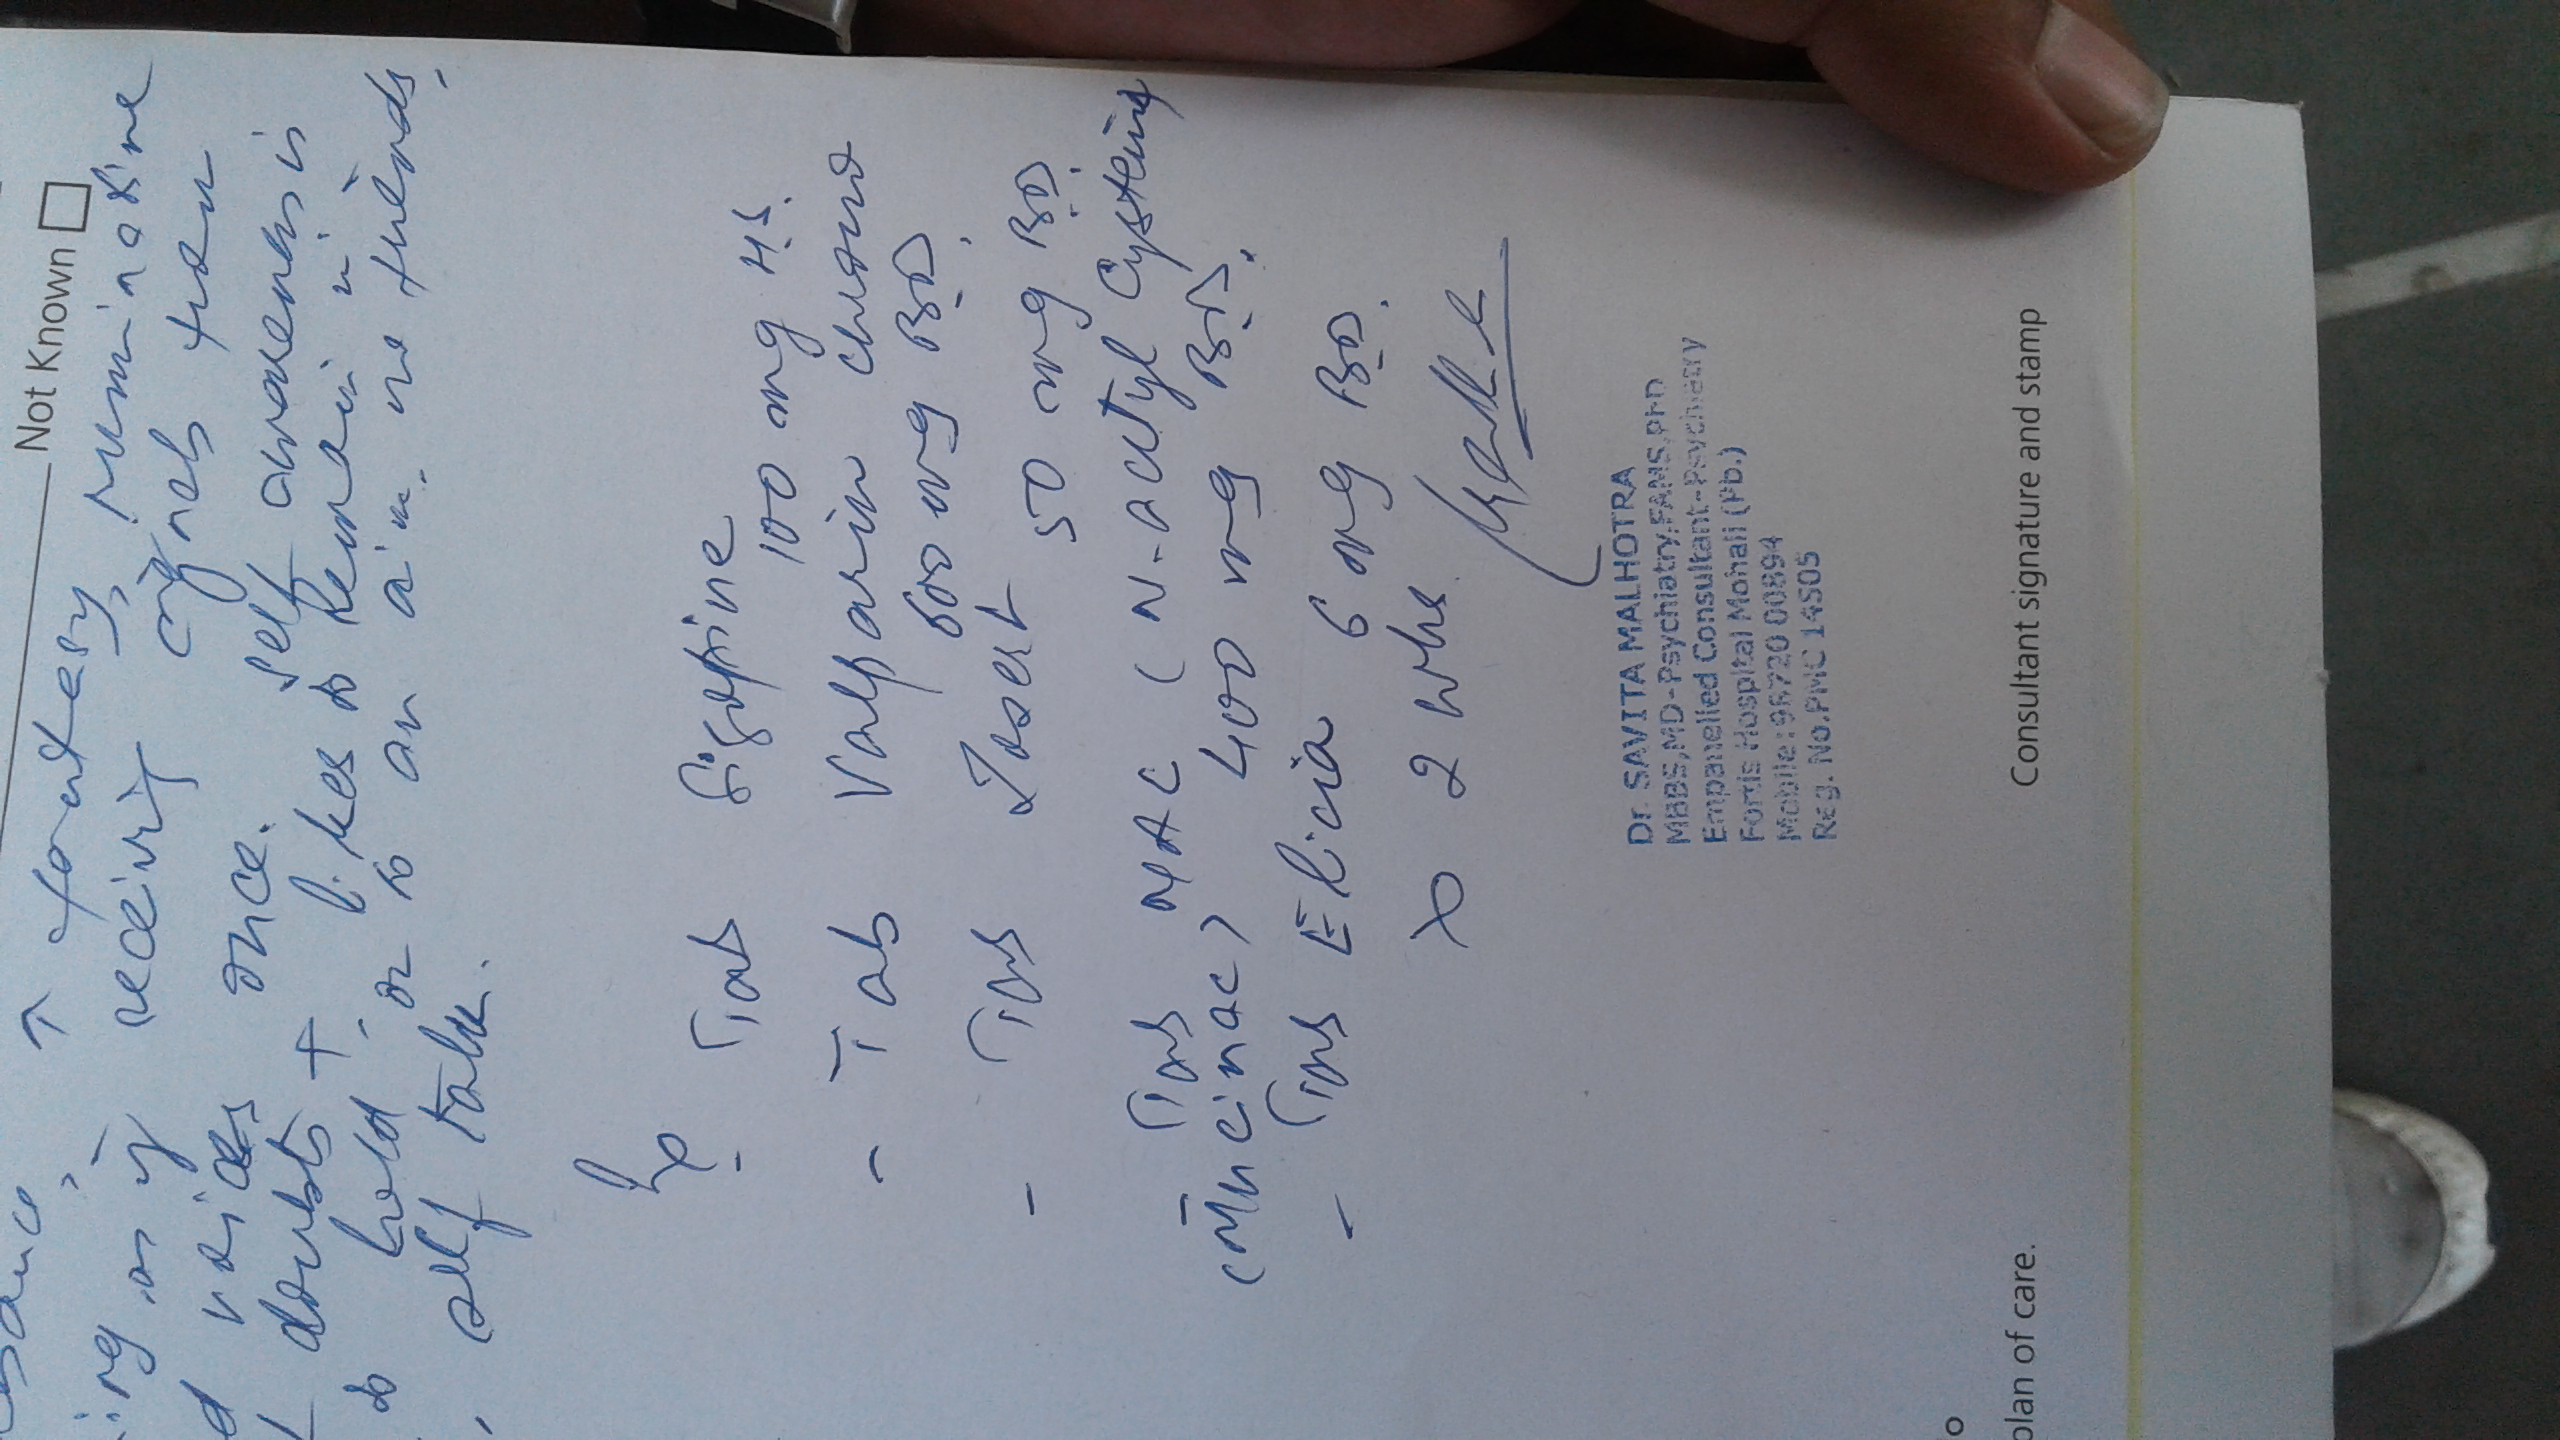 Not Known
↑ fantasy, ruminative
as if receiving signals from
voices once. Self awareness is
doubts +. likes to remain in
to hold on to an aim, no friends,
, self talk.
Tab Sizopine
100 mg H.S.
- Tab Valparin chrono
600 mg B.D.
- Tab Zosert 50 mg B.D.
- Tab NAC (N-acetyl Cysteine)
(Mucinac) 400 mg B.D.
- Tab Elicia 6 mg B.D.
x 2 wks
Dr. SAVITA MALHOTRA
MBBS,MD-Psychiatry,FAMS,PhD
Empanelled Consultant-Psychiatry
Fortis Hospital Mohali (Pb.)
Mobile:98720 00894
Reg. No.PMC 14505
plan of care.
Consultant signature and stamp